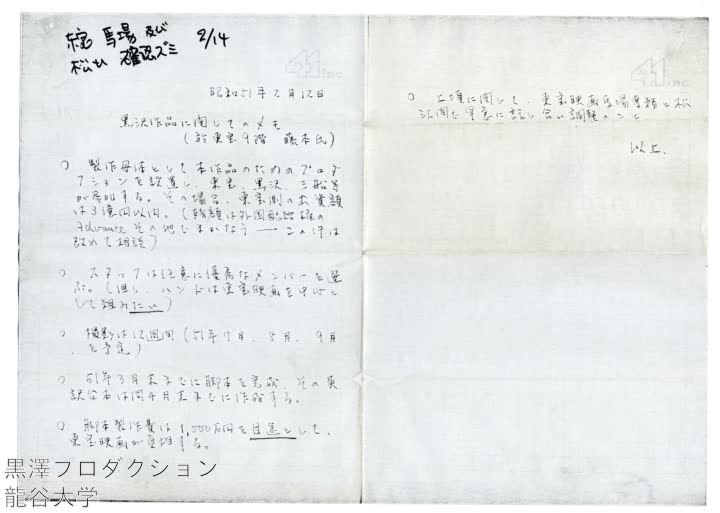 馬場 及び 2/14
松江 確認ズミ
昭和51年2月12日
黒沢作品に関してのメモ
(於東宝9階 藤本氏)
○ 製作母体として本作品のためのプロダ
クションを設置し、東宝、黒沢、三船等
が参加する。その場合、東宝側の出資額
は3億円以内。(残額は外国配給権の
Advance その他でまかなう ── この件は
改めて相談)
○ スタッフは任意に優秀なメンバーを選
ぶ。(但し、ハンドは東宝映画を中心と
して組みたい)
○ 撮影は12週間(51年7月、8月、9月
を予定)
○ 51年3月末までに脚本を完成、その英
訳台本は同4月末までに作成する。
○ 脚本製作費は1,000万円を目途として、
東宝映画が負担する。
○ 上項に関して、東宝映画馬場専務と松
江間で早急に話し合い調整のこと
以上.
41 inc.
41 inc.
黒澤フロダクション
龍谷大学